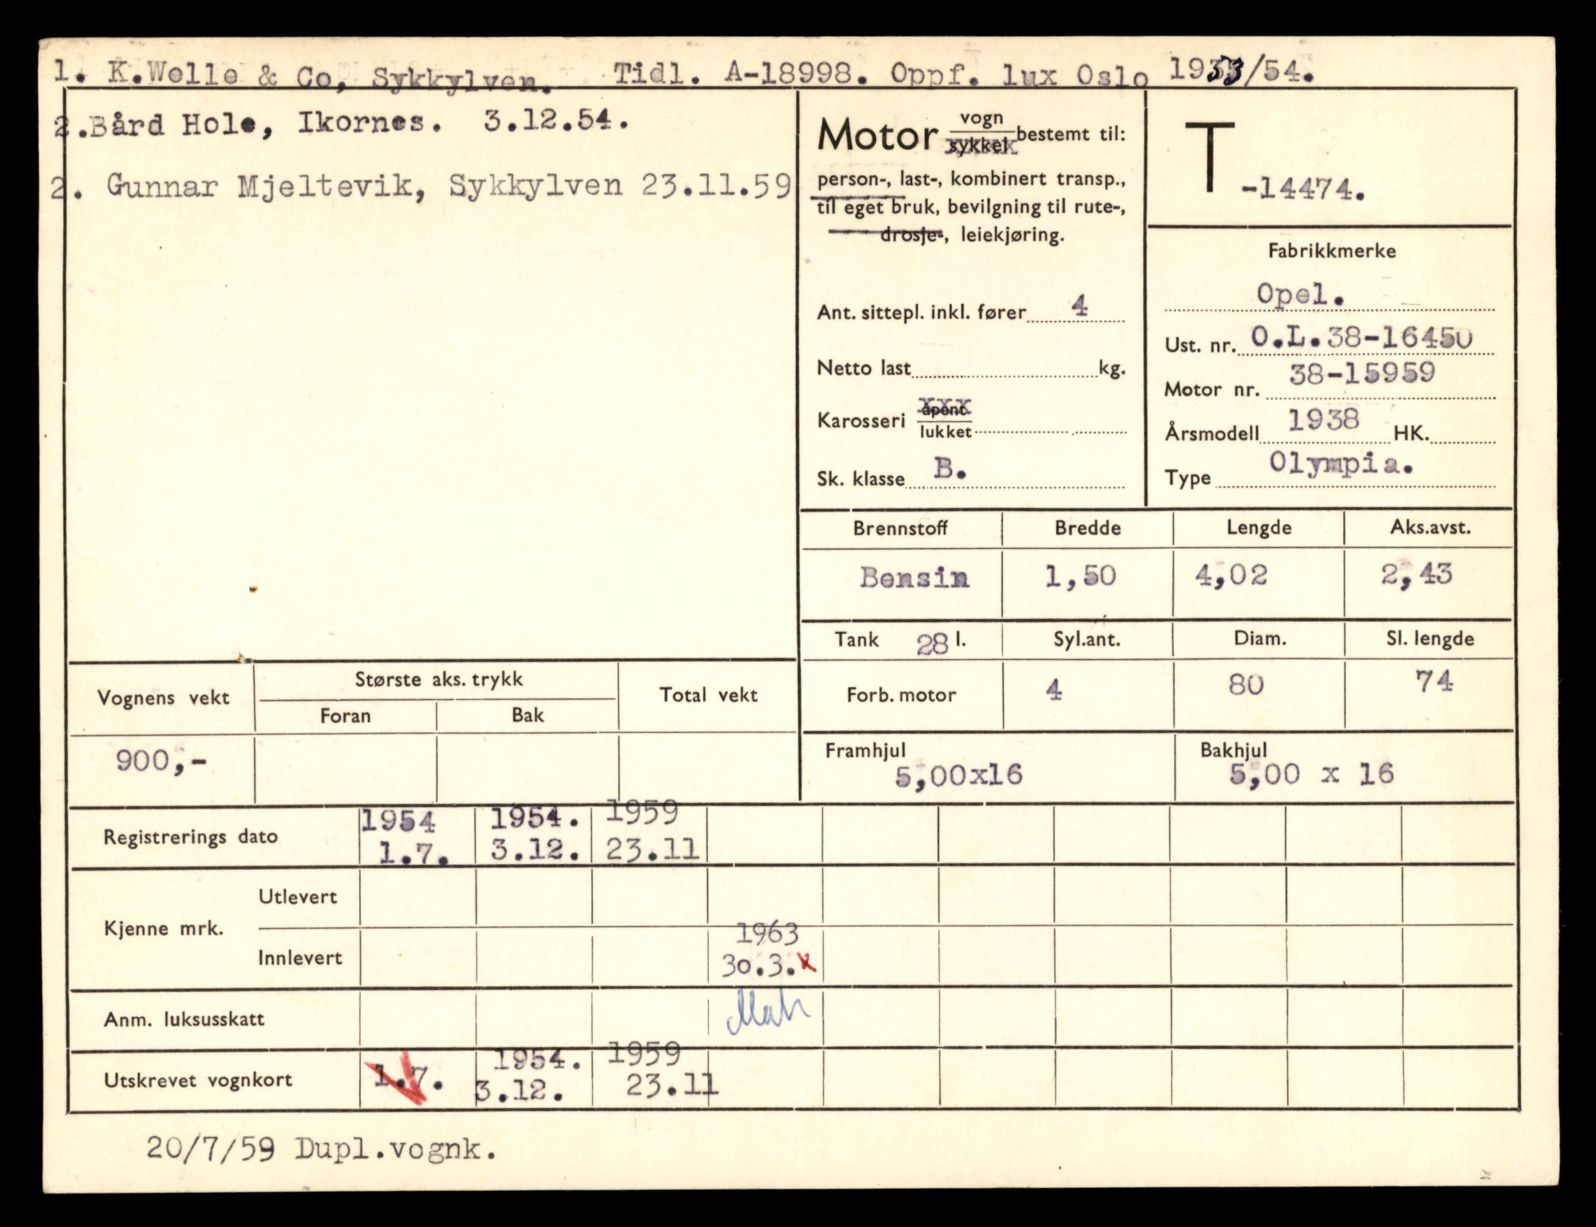 1. K.Welle & Co, Sykkylven. Tidl. A-18998. Oppf. lux Oslo 1953/54.
2.Bård Hole, Ikornes. 3.12.54.
2. Gunnar Mjeltevik, Sykkylven 23.11.59
Motor vogn
sykkel bestemt til:
person-, last-, kombinert transp.,
til eget bruk, bevilgning til rute-,
drosje-, leiekjøring.
Ant. sittepl. inkl. fører 4
Netto last kg.
Karosseri åpent
xxx
lukket
Sk. klasse B.
T
-14474.
Fabrikkmerke
Opel.
Ust. nr. O.L.38-16450
Motor nr. 38-15959
Årsmodell 1938 HK.
Type Olympia.
Brennstoff Bredde Lengde Aks.avst.
Bensin 1,50 4,02 2,43
Tank 28 l. Syl.ant. Diam. Sl. lengde
Forb. motor 4 80 74
Framhjul 5,00x16
Bakhjul 5,00 x 16
Vognens vekt Største aks. trykk Total vekt
Foran Bak
900,-
Registrerings dato 1954 1954. 1959
1.7. 3.12. 23.11
Kjenne mrk. Utlevert
Innlevert 1963
30.3.x
Anm. luksusskatt
Utskrevet vognkort 1.7. 1954. 1959
3.12. 23.11
20/7/59 Dupl.vognk.